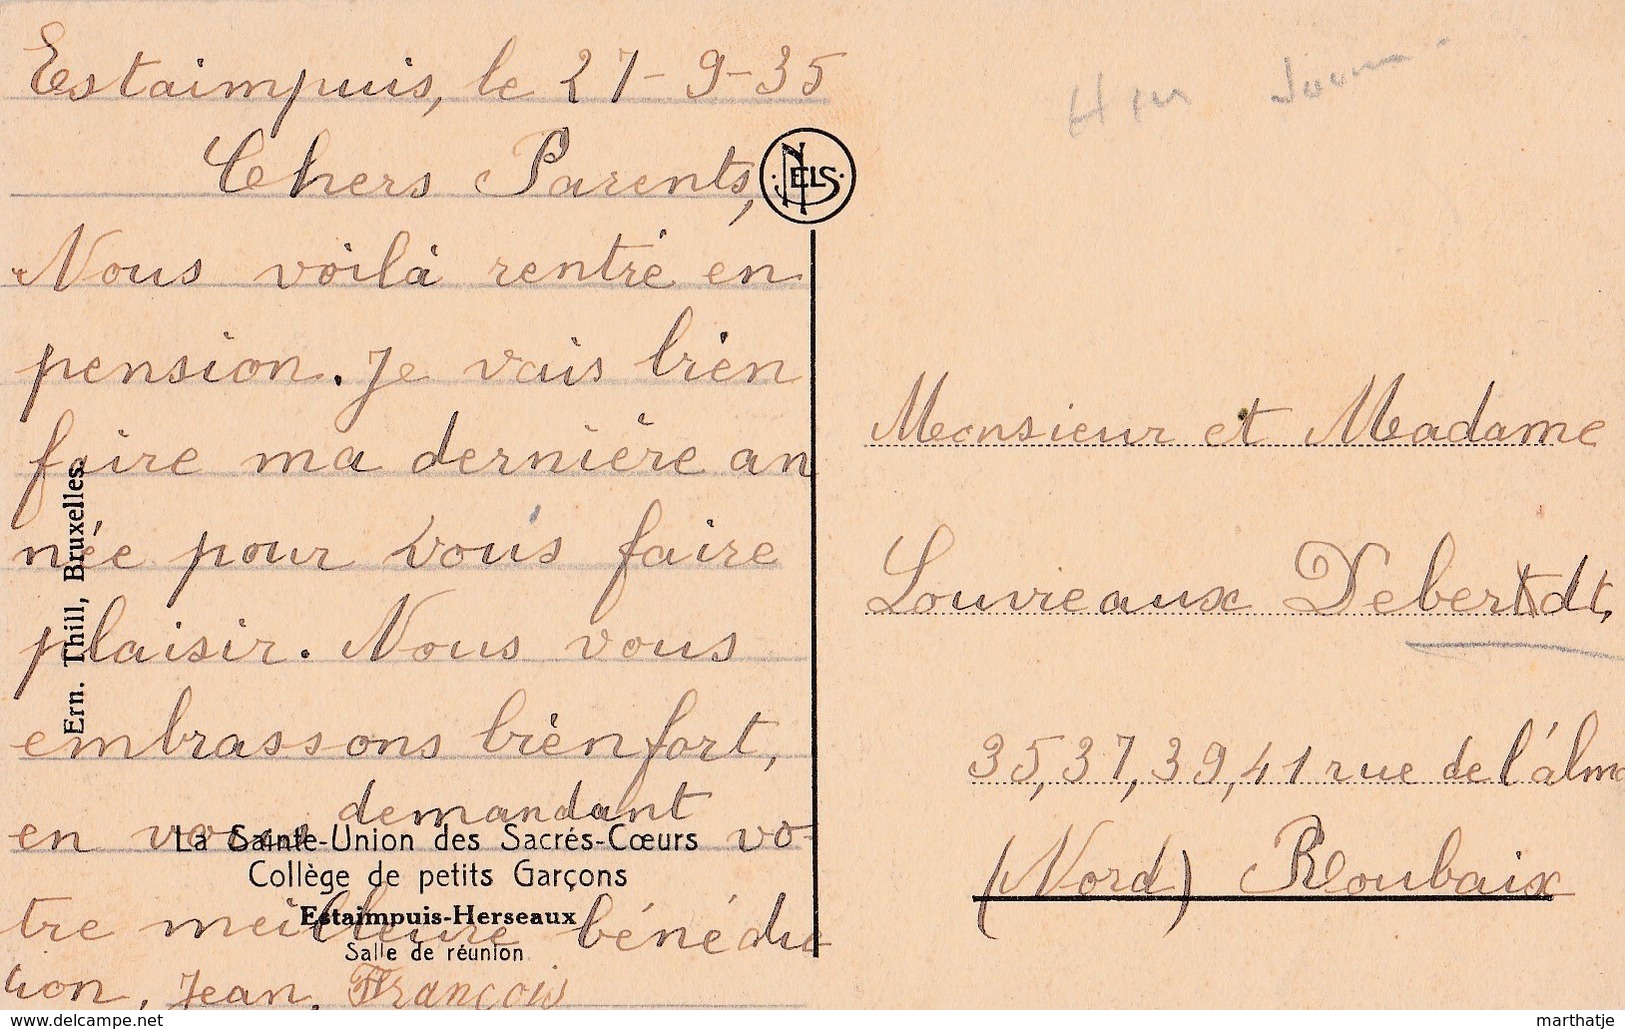 Estaimpuis, le 27-9-35
Chers Parents,
Nous voilà rentré en
pension. Je vais bien
faire ma dernière an
née pour vous faire
plaisir. Nous vous
embrassons bien fort,
en vous demandant vo-
tre meilleure bénédic
tion, Jean, François
NELS
Ern. Thill, Bruxelles.
La Sainte-Union des Sacrés-Cœurs
Collège de petits Garçons
Estaimpuis-Herseaux
Salle de réunion
Monsieur et Madame
Louvieaux Debertdt,
35, 37, 39, 41 rue de l'álma
(Nord) Roubaix
www.delcampe.net
marthatje